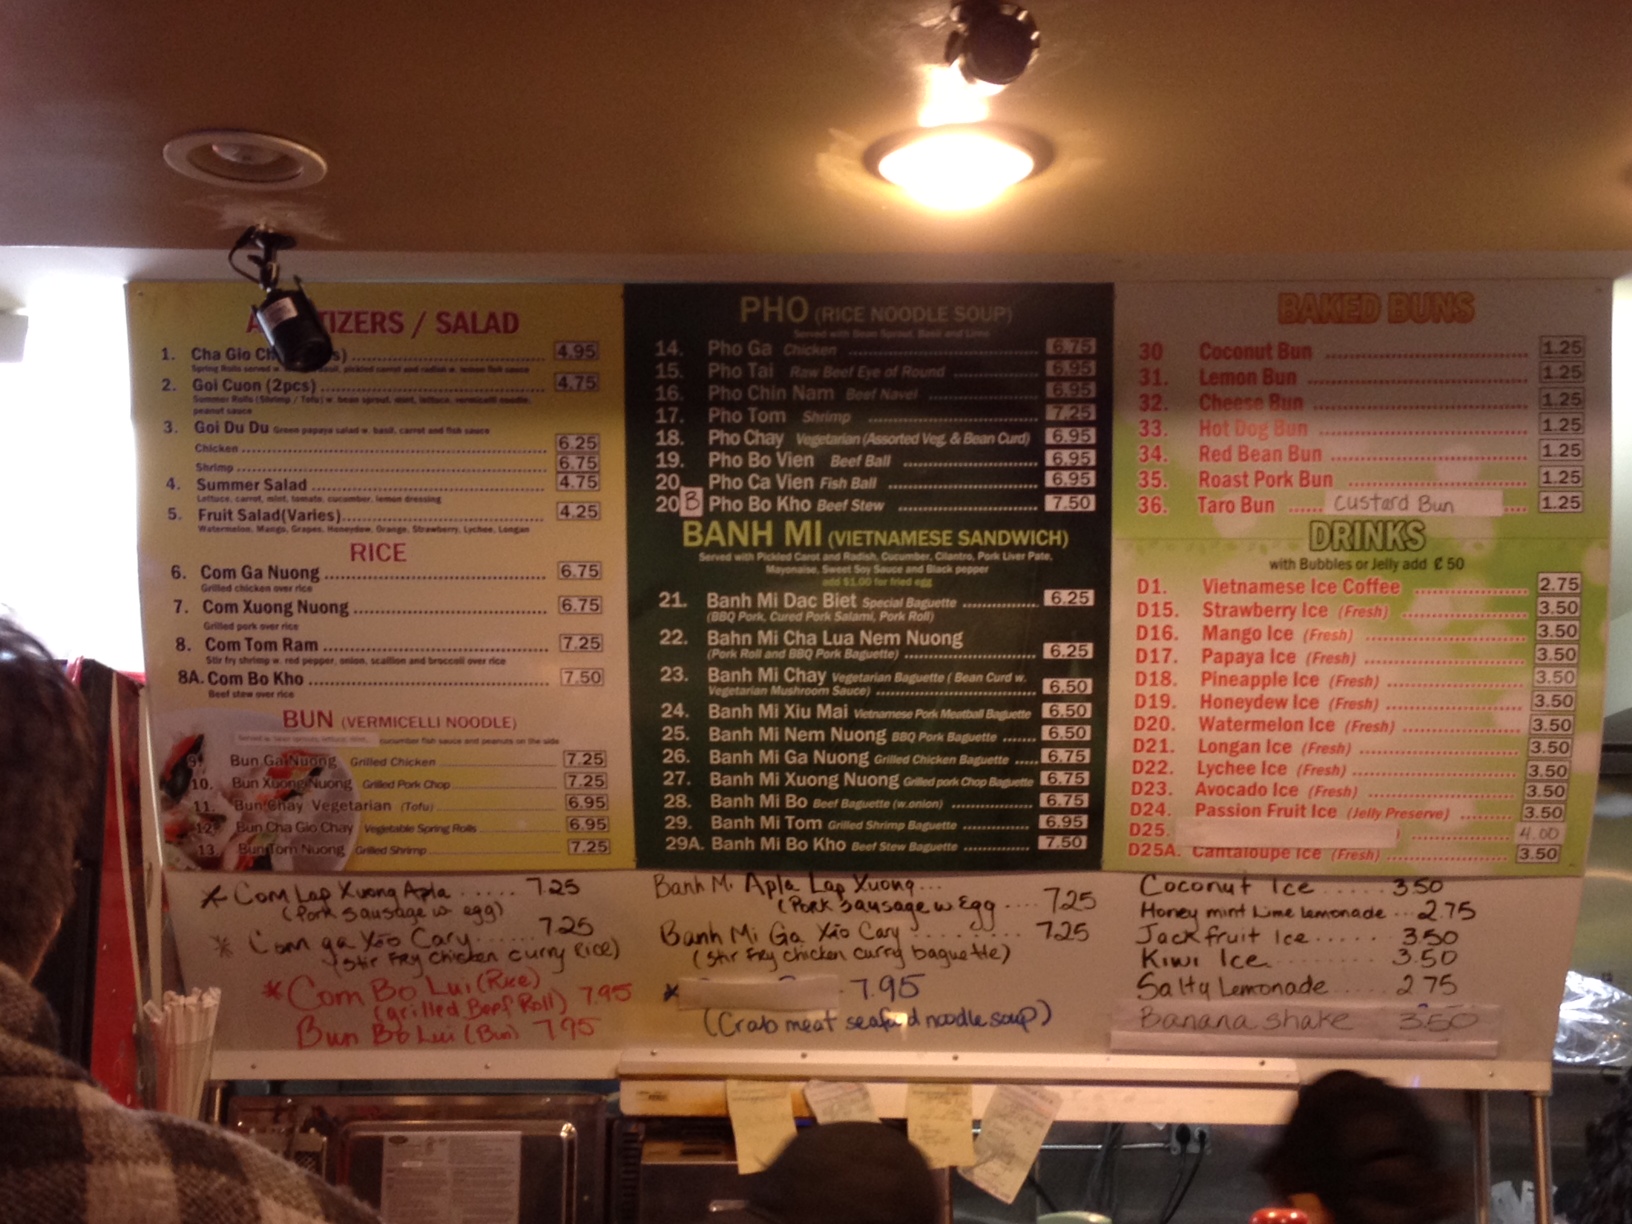 A TIZERS / SALAD
1. Cha Gio Ch s) 4.95
Spring Rolls served w. pickled carrot and radish w. lemon fish sauce
2. Goi Cuon (2pcs) 4.75
Summer Rolls (Shrimp / Tofu) w. bean sprout, mint, lettuce, vermicelli noodle,
peanut sauce
3. Goi Du Du Green papaya salad w. basil, carrot and fish sauce
Chicken 6.25
Shrimp 6.75
4. Summer Salad 4.75
Lettuce, carrot, mint, tomato, cucumber, lemon dressing
5. Fruit Salad(Varies) 4.25
Watermelon, Mango, Grapes, Honeydew, Orange, Strawberry, Lychee, Longan
RICE
6. Com Ga Nuong 6.75
Grilled chicken over rice
7. Com Xuong Nuong 6.75
Grilled pork over rice
8. Com Tom Ram 7.25
Stir fry shrimp w. red pepper, onion, scallion and broccoli over rice
8A. Com Bo Kho 7.50
Beef stew over rice
BUN (VERMICELLI NOODLE)
cucumber fish sauce and peanuts on the side
9. Bun Ga Nuong Grilled Chicken 7.25
10. Bun Xuong Nuong Grilled Pork Chop 7.25
11. Bun Chay Vegetarian (Tofu) 6.95
12. Bun Cha Gio Chay Vegetable Spring Rolls 6.95
13. Bun Tom Nuong Grilled Shrimp 7.25
* Com Lap Xuong Apla ...... 7.25
(Pork Sausage w egg)
* Com ga Xào Cary ....... 7.25
(Stir Fry Chicken curry Rice)
* Com Bo Lui (Rice)
(grilled Beef Roll) 7.95
Bun Bo Lui (Bun) 7.95
PHO (RICE NOODLE SOUP)
Served with Bean Sprout, Basil and Lime
14. Pho Ga Chicken 6.75
15. Pho Tai Raw Beef Eye of Round 6.95
16. Pho Chin Nam Beef Navel 6.95
17. Pho Tom Shrimp 7.25
18. Pho Chay Vegetarian (Assorted Veg. & Bean Curd) 6.95
19. Pho Bo Vien Beef Ball 6.95
20. Pho Ca Vien Fish Ball 6.95
20 B Pho Bo Kho Beef Stew 7.50
BANH MI (VIETNAMESE SANDWICH)
Served with Pickled Carot and Radish, Cucumber, Cilantro, Pork Liver Pate,
Mayonaise, Sweet Soy Sauce and Black pepper
add $1.00 for fried egg
21. Banh Mi Dac Biet Special Baguette 6.25
(BBQ Pork, Cured Pork Salami, Pork Roll)
22. Bahn Mi Cha Lua Nem Nuong
(Pork Roll and BBQ Pork Baguette) 6.25
23. Banh Mi Chay Vegetarian Baguette ( Bean Curd w.
Vegetarian Mushroom Sauce) 6.50
24. Banh Mi Xiu Mai Vietnamese Pork Meatball Baguette 6.50
25. Banh Mi Nem Nuong BBQ Pork Baguette 6.50
26. Banh Mi Ga Nuong Grilled Chicken Baguette 6.75
27. Banh Mi Xuong Nuong Grilled pork Chop Baguette 6.75
28. Banh Mi Bo Beef Baguette (w.onion) 6.75
29. Banh Mi Tom Grilled Shrimp Baguette 6.95
29A. Banh Mi Bo Kho Beef Stew Baguette 7.50
Banh Mi Apla Lap Xuong...
(Pork Sausage w Egg .... 7.25
Banh Mi Ga Xào Cary ......... 7.25
(Stir Fry chicken curry baguette)
* - 7.95
(Crab meat seafood noodle soup)
BAKED BUNS
30 Coconut Bun 1.25
31. Lemon Bun 1.25
32. Cheese Bun 1.25
33. Hot Dog Bun 1.25
34. Red Bean Bun 1.25
35. Roast Pork Bun 1.25
36. Taro Bun ...... Custard Bun .... 1.25
DRINKS
with Bubbles or Jelly add ₵ 50
D1. Vietnamese Ice Coffee 2.75
D15. Strawberry Ice (Fresh) 3.50
D16. Mango Ice (Fresh) 3.50
D17. Papaya Ice (Fresh) 3.50
D18. Pineapple Ice (Fresh) 3.50
D19. Honeydew Ice (Fresh) 3.50
D20. Watermelon Ice (Fresh) 3.50
D21. Longan Ice (Fresh) 3.50
D22. Lychee Ice (Fresh) 3.50
D23. Avocado Ice (Fresh) 3.50
D24. Passion Fruit Ice (Jelly Preserve) 3.50
D25. ) 4.00
D25A. Cantaloupe Ice (Fresh) 3.50
Coconut Ice ..... 3.50
Honey mint Lime lemonade ... 2.75
Jackfruit Ice ...... 3.50
Kiwi Ice ........ 3.50
Salty Lemonade ..... 2.75
Banana shake 3.50